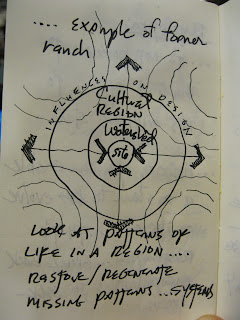 .... example of former
ranch
INFLUENCES ON DESIGN
Cultural
REGION
Watershed
site
LOOK AT patterns of
LIFE IN A REGION ....
RESTORE/REGENERATE
MISSING patterns ... SYSTEMS